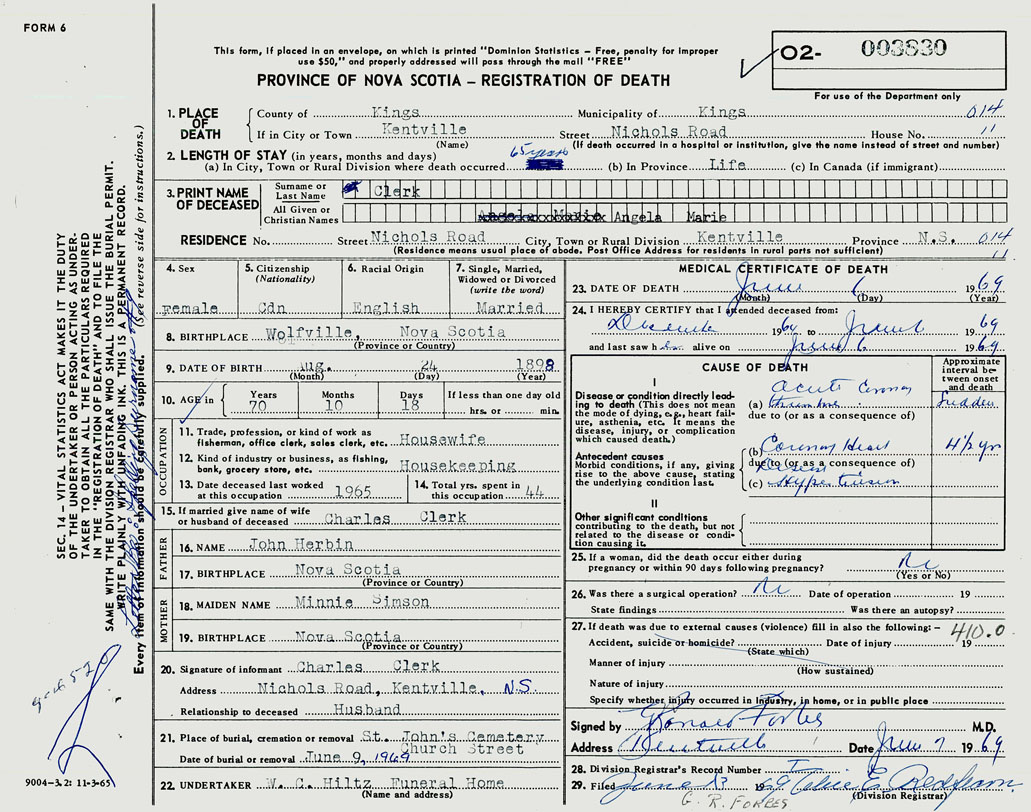 FORM 6
This form, if placed in an envelope, on which is printed "Dominion Statistics – Free, penalty for improper
use $50," and properly addressed will pass through the mail "FREE"
PROVINCE OF NOVA SCOTIA – REGISTRATION OF DEATH
O2- 003830
For use of the Department only
1. PLACE OF DEATH
County of Kings Municipality of Kings 014
If in City or Town Kentville Street Nichols Road House No. 11
(Name) (If death occurred in a hospital or institution, give the name instead of street and number)
2. LENGTH OF STAY (in years, months and days)
(a) In City, Town or Rural Division where death occurred 65 years (b) In Province Life (c) In Canada (if immigrant)
3. PRINT NAME OF DECEASED
Surname or Last Name Clerk
All Given or Christian Names Angela Marie
RESIDENCE No. Street Nichols Road City, Town or Rural Division Kentville Province N.S. 014
(Residence means usual place of abode. Post Office Address for residents in rural parts not sufficient) 11
4. Sex
female
5. Citizenship
(Nationality)
Cdn
6. Racial Origin
English
7. Single, Married,
Widowed or Divorced
(write the word)
Married
8. BIRTHPLACE Wolfville, Nova Scotia
(Province or Country)
9. DATE OF BIRTH Aug. 24 1898
(Month) (Day) (Year)
10. AGE in Years 70 Months 10 Days 18 If less than one day old
hrs. or min.
OCCUPATION
11. Trade, profession, or kind of work as
fisherman, office clerk, sales clerk, etc. Housewife
12. Kind of industry or business, as fishing,
bank, grocery store, etc. Housekeeping
13. Date deceased last worked
at this occupation 1965
14. Total yrs. spent in
this occupation 44
15. If married give name of wife
or husband of deceased Charles Clerk
FATHER
16. NAME John Herbin
17. BIRTHPLACE Nova Scotia
(Province or Country)
MOTHER
18. MAIDEN NAME Minnie Simson
19. BIRTHPLACE Nova Scotia
(Province or Country)
20. Signature of informant Charles Clerk
Address Nichols Road, Kentville, N.S.
Relationship to deceased Husband
21. Place of burial, cremation or removal St. John's Cemetery
Church Street
Date of burial or removal June 9, 1969
22. UNDERTAKER W. C. Hiltz Funeral Home
(Name and address)
MEDICAL CERTIFICATE OF DEATH
23. DATE OF DEATH June 6 1969
(Month) (Day) (Year)
24. I HEREBY CERTIFY that I attended deceased from:
December 1964 to June 6 1969
and last saw her alive on June 6 1969
CAUSE OF DEATH
Approximate
interval be-
tween onset
and death
I
Disease or condition directly lead-
ing to death (This does not mean
the mode of dying, e.g., heart fail-
ure, asthenia, etc. It means the
disease, injury, or complication
which caused death.)
Acute Coronary
(a) thrombosis Sudden
due to (or as a consequence of)
Antecedent causes
Morbid conditions, if any, giving
rise to the above cause, stating
the underlying condition last.
(b) Coronary Heart Disease 4½ yr
due to (or as a consequence of)
(c) Hypertension
II
Other significant conditions
contributing to the death, but not
related to the disease or condi-
tion causing it.
25. If a woman, did the death occur either during
pregnancy or within 90 days following pregnancy? No
(Yes or No)
26. Was there a surgical operation? No Date of operation 19
State findings Was there an autopsy?
27. If death was due to external causes (violence) fill in also the following: – 410.0
Accident, suicide or homicide? Date of injury 19
(State which)
Manner of injury
(How sustained)
Nature of injury
Specify whether injury occurred in Industry, in home, or in public place
Signed by Ronald Forbes M.D.
Address Kentville Date June 7 1969
28. Division Registrar's Record Number
29. Filed June 13 1969
(Division Registrar)
G. R. FORBES
SEC. 14 – VITAL STATISTICS ACT MAKES IT THE DUTY
OF THE UNDERTAKER OR PERSON ACTING AS UNDER-
TAKER TO OBTAIN ALL THE PARTICULARS REQUIRED
IN THE "REGISTRATION OF DEATH" AND TO FILE THE
SAME WITH THE DIVISION REGISTRAR WHO SHALL ISSUE THE BURIAL PERMIT.
WRITE PLAINLY WITH UNFADING INK. THIS IS A PERMANENT RECORD.
Every item of information should be carefully supplied. (See reverse side for instructions.)
9004-3.2: 11-3-65